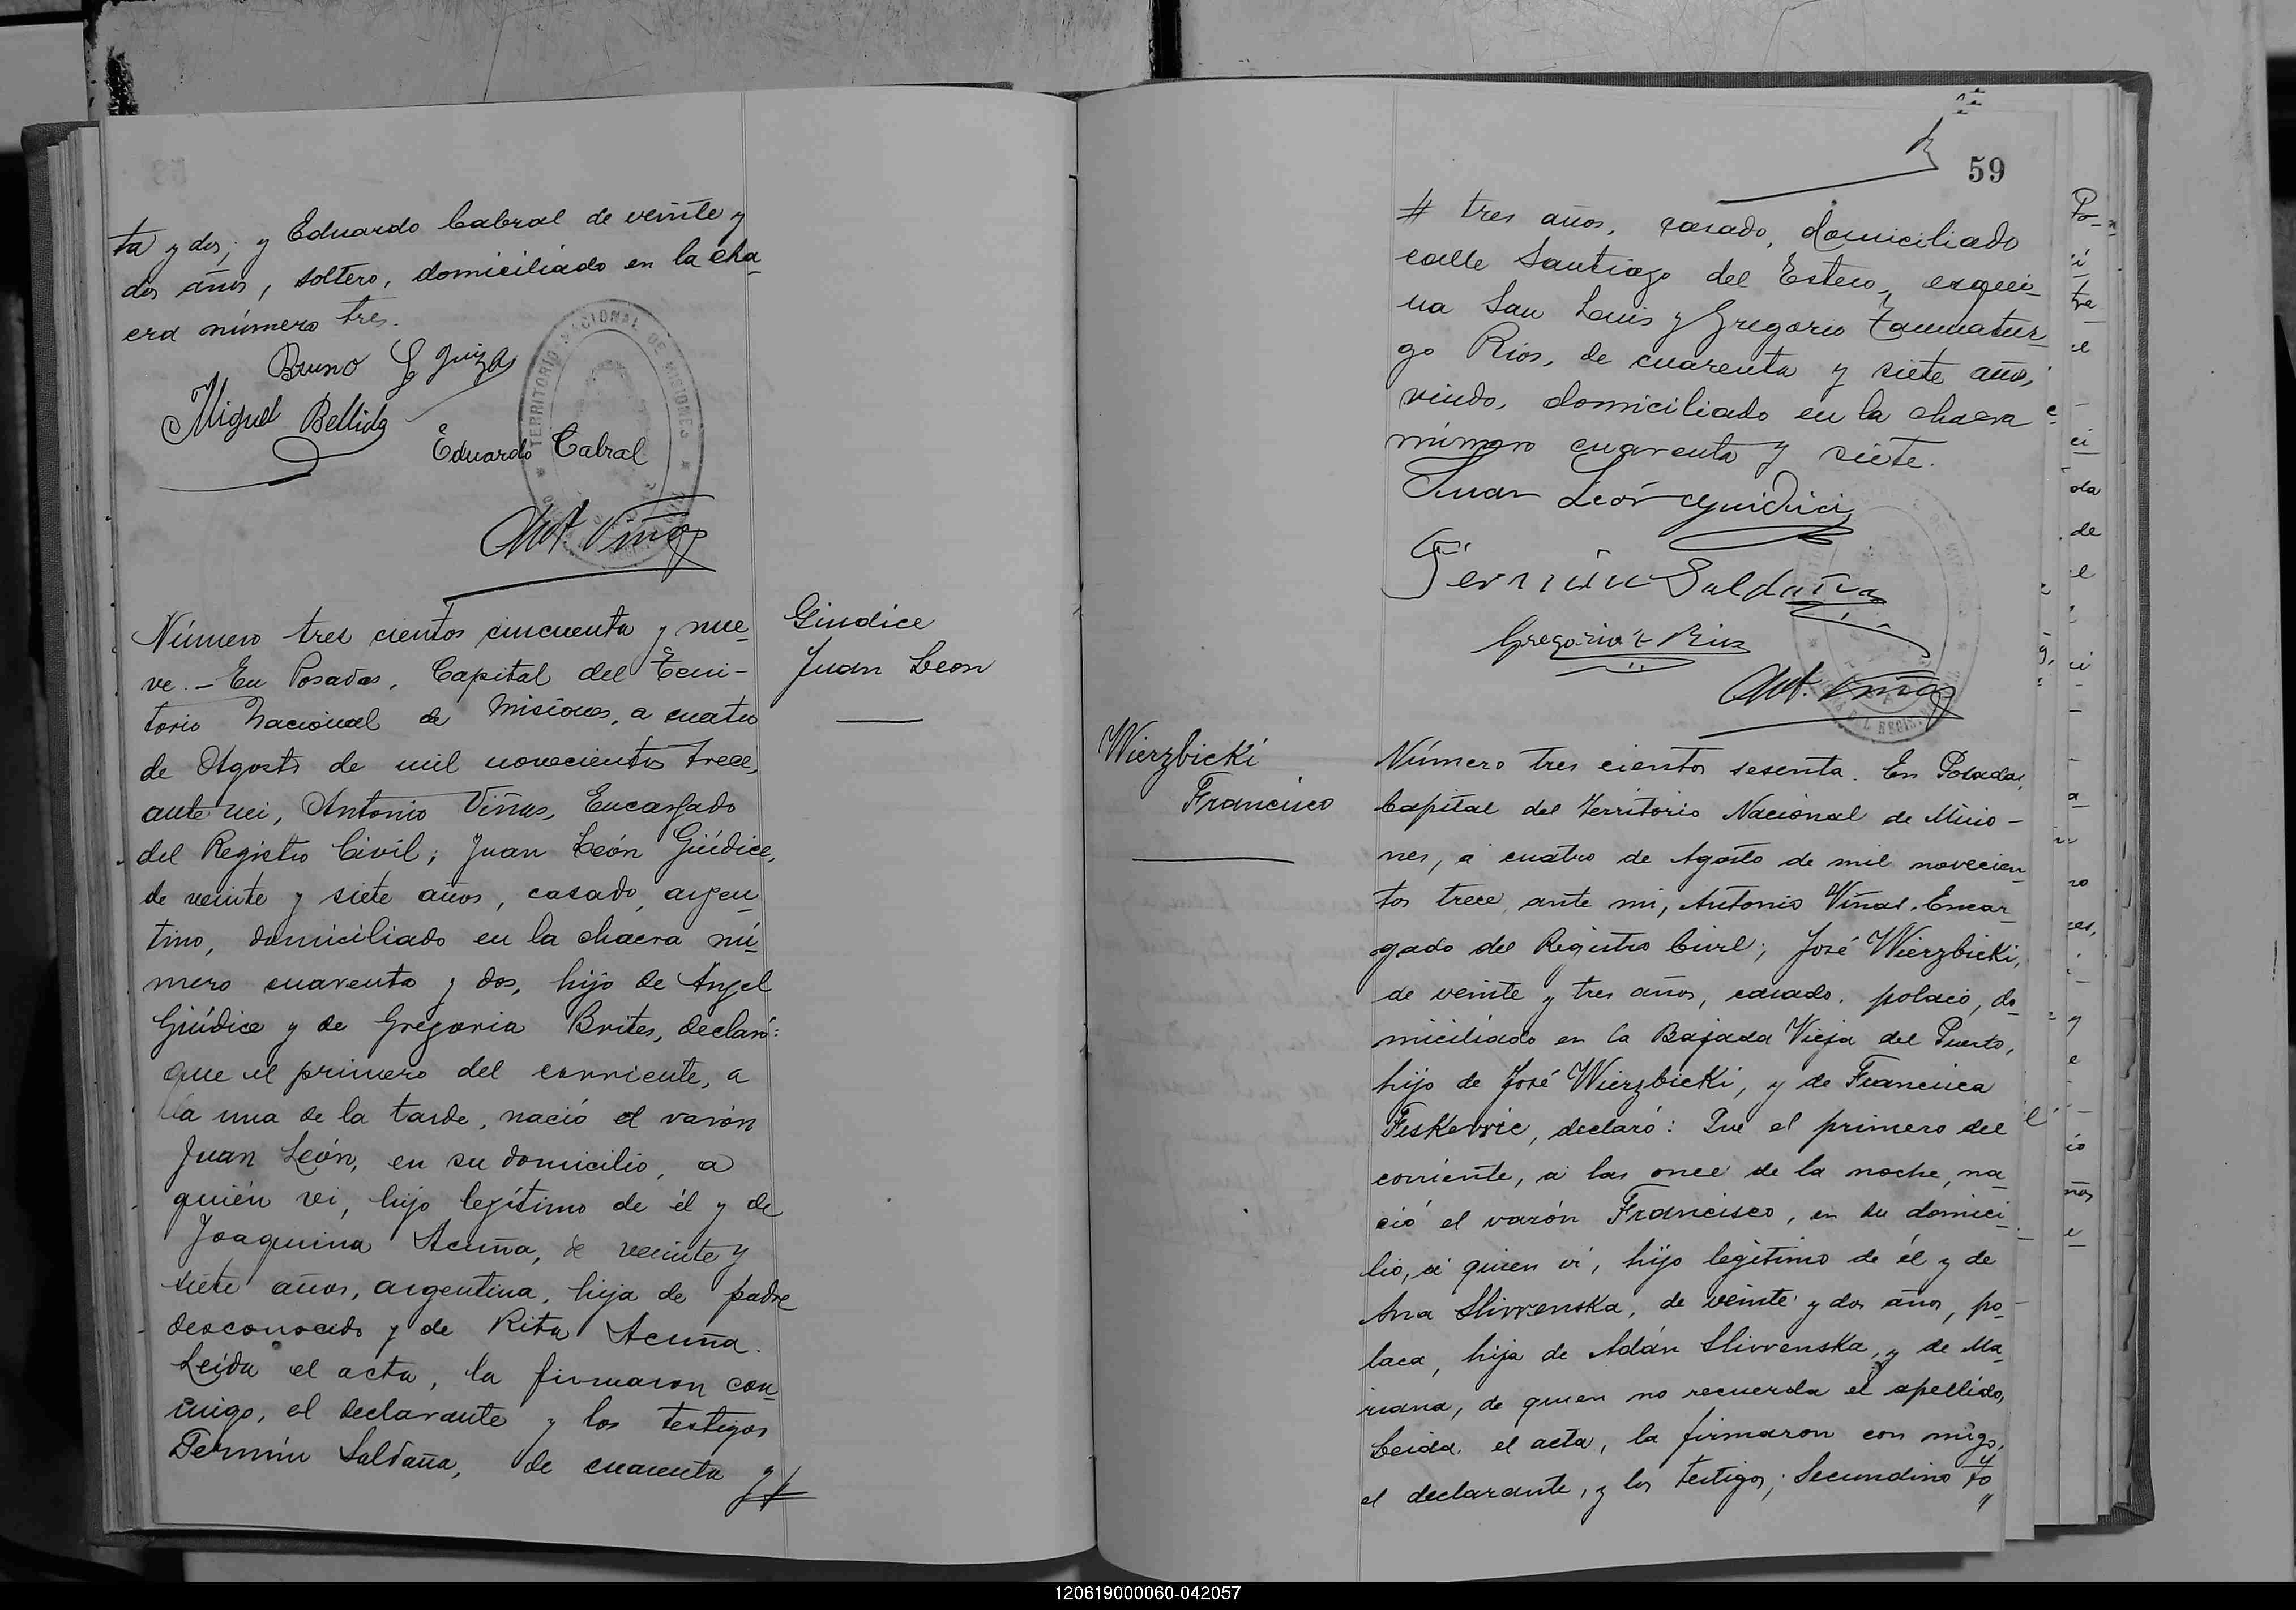 ta y dos; y Eduardo Cabral de veinte y
dos años, soltero, domiciliado en la cha
cra número tres.
Bruno
Miguel Bellido
Eduardo Cabral
TERRITORIO NACIONAL DE MISIONES
Ant. Viñas
Número tres cientos cincuenta y nue
ve. - En Posadas, Capital del Terri-
torio Nacional de Misiones, a cuatro
de Agosto de mil novecientos trece,
ante mi, Antonio Viñas, Encargado
del Registro Civil; Juan León Giúdice,
de veinte y siete años, casado, argen
tino, domiciliado en la chacra nú
mero cuarenta y dos, hijo de Angel
Giúdice y de Gregoria Brites, declaró:
que el primero del corriente, a
la una de la tarde, nació el varón
Juan León, en su domicilio, a
quién vi, hijo legítimo de él y de
Joaquina Acuña, de veinte y
siete años, argentina, hija de padre
desconocido y de Rita Acuña.
Leída el acta, la firmaron con
migo, el declarante y los testigos
Fermín Saldaña, de cuarenta y #
Giudice
Juan Leon
59
# tres años, casado, domiciliado
calle Santiago del Estero, esqui-
na San Luis y Gregorio Taumatur-
go Rios, de cuarenta y siete años,
viudo, domiciliado en la chacra
número cuarenta y siete.
Juan León Guidici
Fermín Saldaña
Gregorio T Rios
Ant. Viñas
Wierzbicki
Francisco
Número tres cientos sesenta. En Posadas,
Capital del Territorio Nacional de Misio-
nes, a cuatro de Agosto de mil novecien-
tos trece, ante mi, Antonio Viñas, Encar-
gado del Registro Civil; José Wierzbicki,
de veinte y tres años, casado, polaco, do-
miciliado en la Bajada Vieja del Puerto,
hijo de José Wierzbicki, y de Francisca
declaró: Que el primero del
corriente, a las once de la noche, na-
ció el varón Francisco, en su domici-
lio, a quien vi, hijo legítimo de él y de
Ana Slivvenska, de veinte y dos años, po-
laca, hija de Adán Slivvenska, y de Ma-
riana, de quien no recuerda el apellido,
Leida el acta, la firmaron con migo,
el declarante, y los testigos; Secundino
120619000060-042057